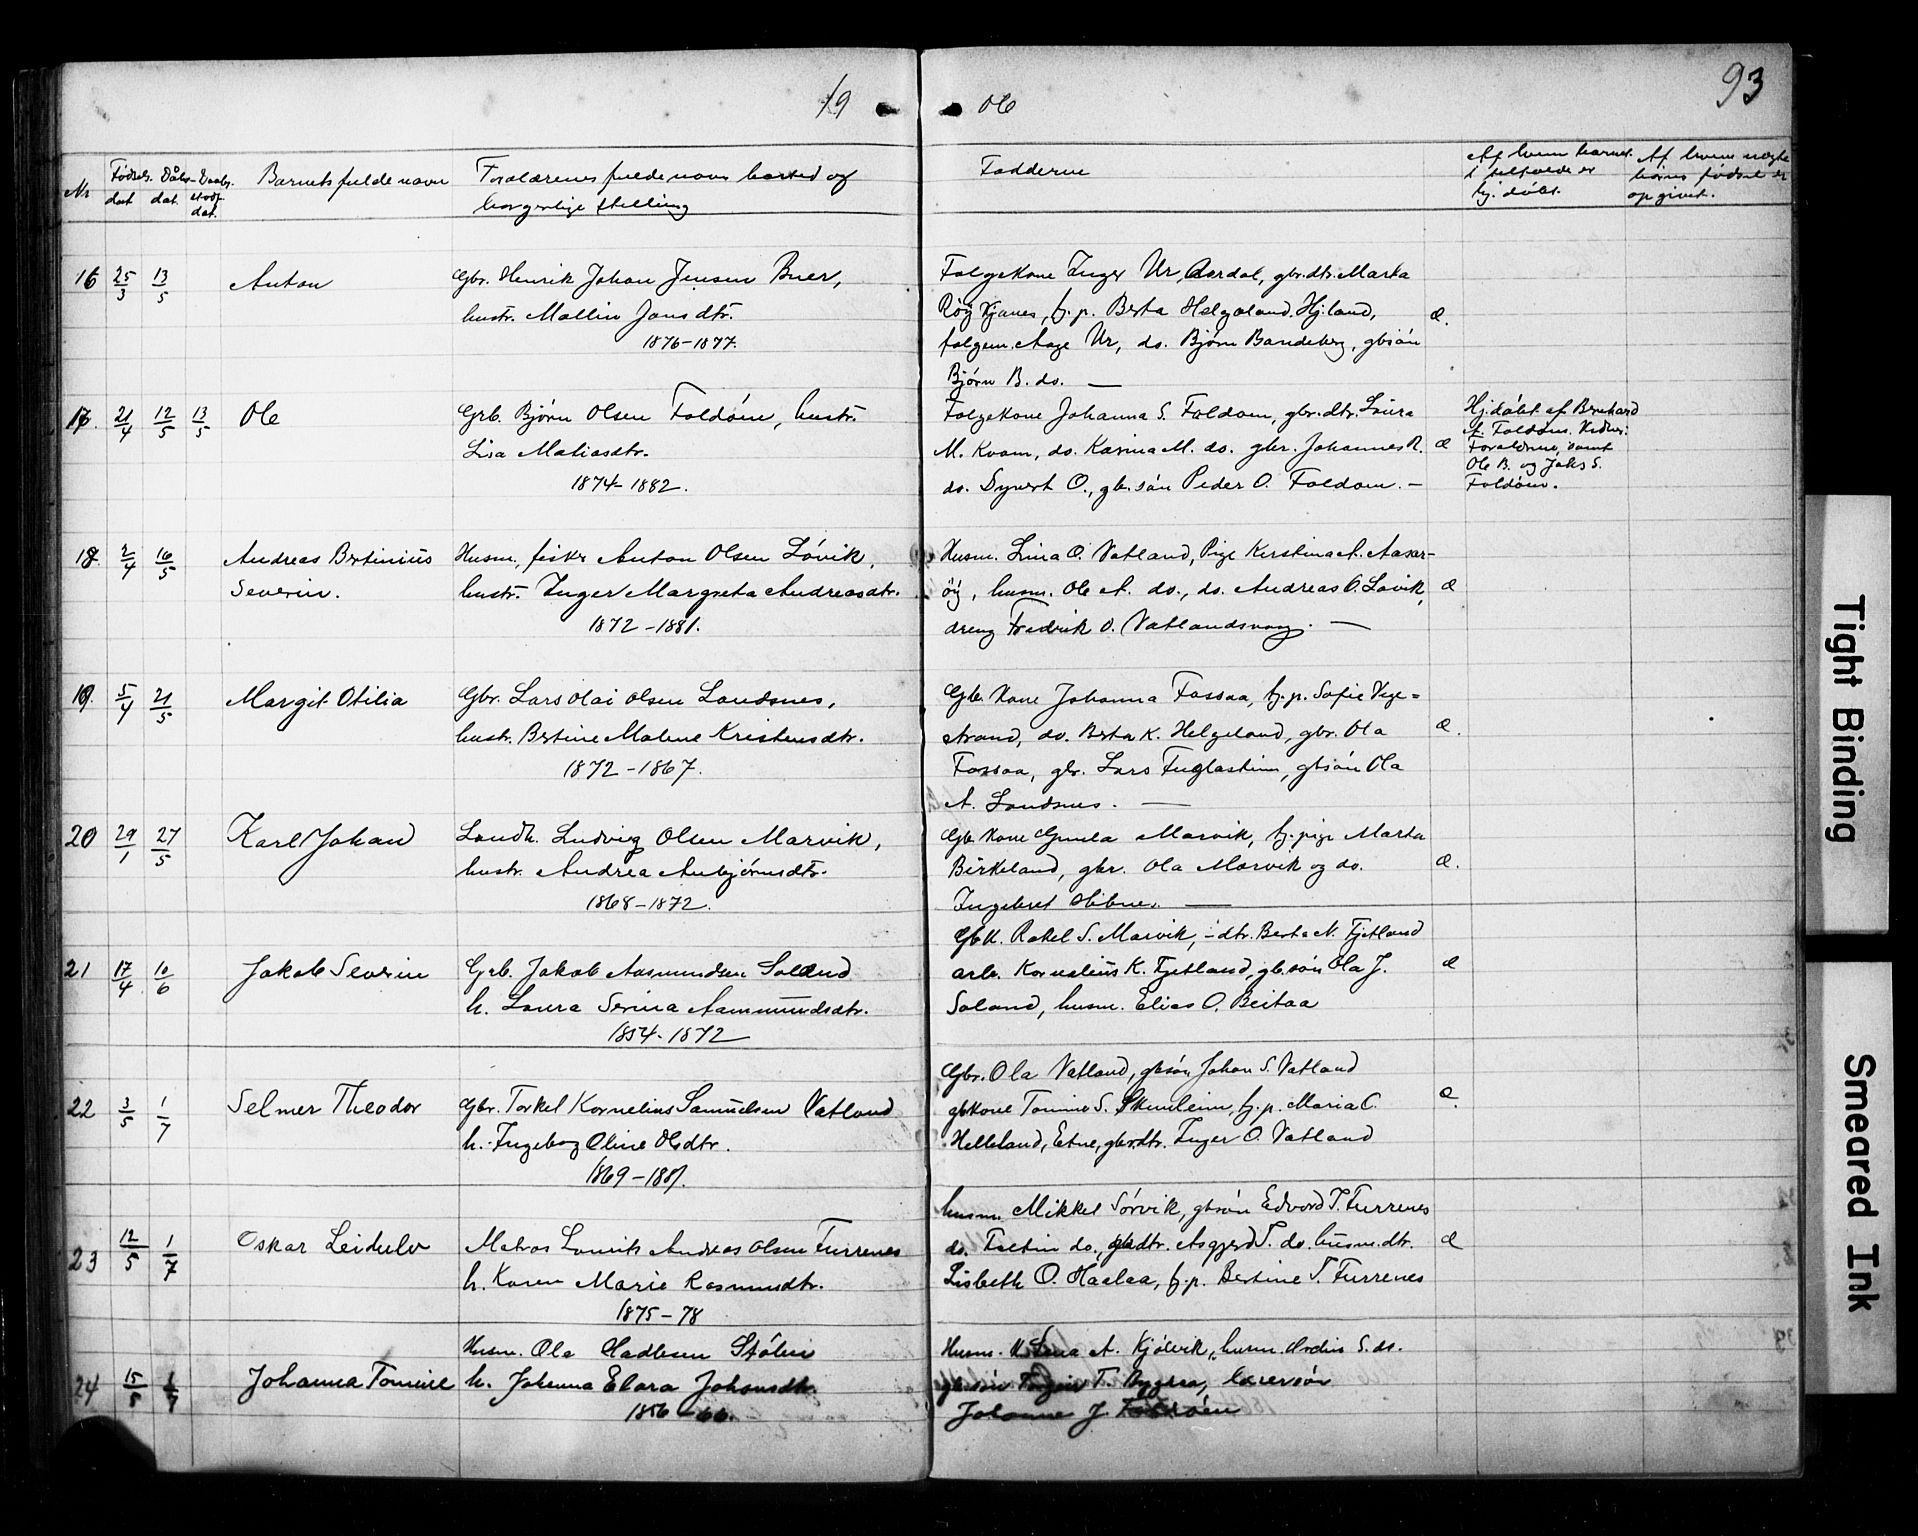 19
06
93
Nr
Fødsels dat
Dåbs dat.
Daabs stadf. dat.
Barnets fulde navn
Forælrenes fulde navn bosted og
borgerlige stilling
Fadderne
Af hvem barnet
i tilfælde er
hj. døbt.
Af hvem uægte
børns fødsel er
opgivet.
16 25/3 13/5 Anton
Gbr. Henrik Johan Jensen Buer,
hustr. Mallin Jansdtr.
1876-1877.
Følgekone Inger Ur, Aardal, gbr.dtr. Marta
Røg Kjanes, hj. p. Berta Helgaland. Hj.land,
følgem. Aage Ur, do. Bjørn Bandeberg, gbsøn
Bjørn B. do. —
æ.
17. 21/4 12/5 13/5 Ole
Grb. Bjørn Olsen Foldøen, hustr.
Lisa Matiasdtr.
1874-1882.
Følgekone Johanna S. Foldøen, gbr.dtr. Laura
M. Kvam, do. Karina M. do. gbr. Johannes R.
do. Syvert O., gb.søn Peder O. Foldøen. —
æ
Hj. døbt af Bernhard
A. Foldøen. Vidner:
Forældrene, samt
Ole B. og Johs S.
Foldøen.
18. 2/4 16/5 Andreas Bertinius
Severin.
Husm. fisker Anton Olsen Løvik,
hustr. Inger Margreta Andreasdtr.
1872-1881.
Husm. Lina O. Vatland, Pige Kerstina A. Aasar-
øy, husm. Ole A. do., do. Andreas O. Løvik,
dreng Fredrik O. Vatlandsvag. —
æ
19. 5/4 21/5 Margit Otilia
Gbr. Lars Olai Olsen Landsnes,
hustr. Bertine Malene Kristensdtr.
1872-1867.
Gb. kone Johanna Fossaa, hj. p. Sofie Vige=
strand, do. Berta K. Helgeland, gbr. Ola
Fossaa, gbr. Lars Fuglastein, gbsøn Ola
A. Landsnes. —
æ.
20 29/1 27/5 Karl Johan
Landh. Ludvig Olsen Marvik,
hustr. Andrea Anbjørnsdtr.
1868-1872.
Gb. kone Gunla Marvik, hj. pige Marta
Birkeland, gbr. Ola Marvik og do.
Ingebret Hibnes. —
æ.
21 17/4 10/6 Jakob Severin
Grb. Jakob Aasmundsen Soland
h. Laura Serina Aanmundsdtr.
1854-1872
Gbk. Rakel S. Marvik, -dtr. Berta N. Fjetland
arb. Kornelius K. Fjetland, gb.søn Ola J.
Soland, husm. Elias O. Beitaa
æ
22 3/5 1/7 Selmer Theodor
Gbr. Torkel Kornelius Samuelsen Vatland
h. Ingeborg Oline Olsdtr.
1869-1881.
Gbr. Ola Vatland, gbsøn Johan S. Vatland
gbkone Tomine S. Skeiseleim, hj. p. Maria O.
Helleland, Etne, gbr.dtr. Inger O. Vatland
æ.
23 12/5 1/7 Oskar Leidulv
Matros Laurits Andreas Olsen Furrenes
h. Karen Marie Rasmusdtr.
1875-78
husm. Mikkel Sørvik, gbsøn Edvard T. Furrenes
do. Tollein do., gbdtr. Asgjerd T. do. husm.dtr.
Lisbeth O. Haalaa, hj. p. Bertine T. Furrenes
æ
24 15/5 1/7 Johanna Tomine
Husm. Ola Gadlesen Stølen
h. Johanna Elara Johansdtr.
1856-66.
Husm. K. Lina A. Kjølvik, husm. Ardin S. do.
gbrsøn Torgeir T. Byggraa, lærersøn
Johannes J. Foldøen
Tight Binding
Smeared Ink